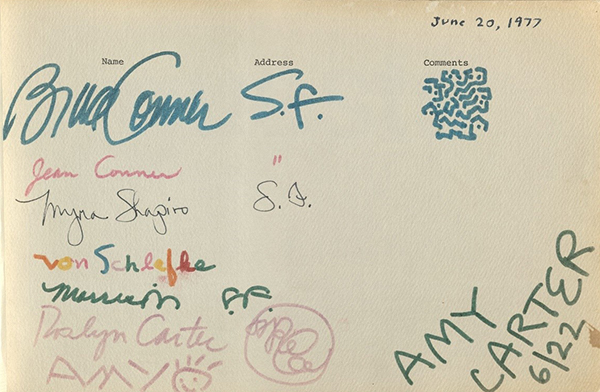 June 20, 1977
Name Address Comments
Bruce Conner S.F.
Jean Conner "
Myra Shapiro S.F.
von Schlefke
S.F.
Roslyn Carter
AMY
AMY
CARTER
6/22